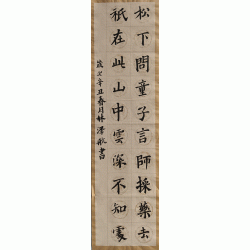 松下問童子言師採藥去
祇在此山中雲深不知處
歲次辛丑春月林澤猷書